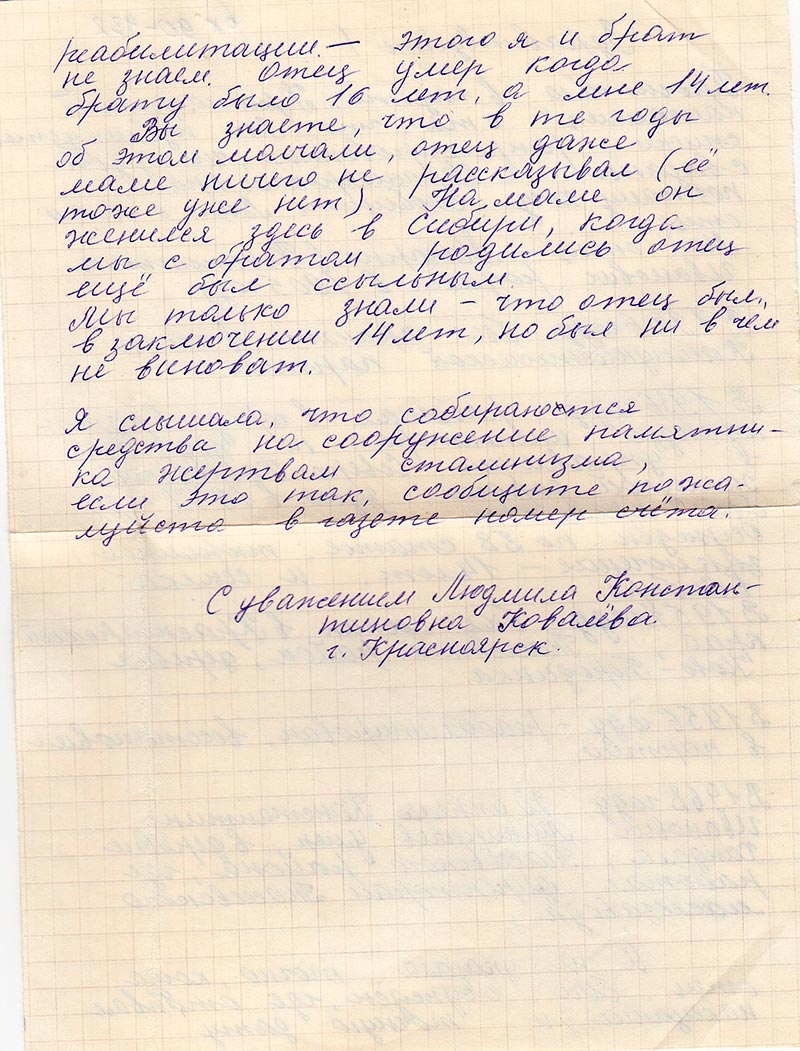 реабилитации. — этого я и брат
не знаем. Отец умер когда
брату было 16 лет, а мне 14 лет.
Вы знаете, что в те годы
об этом молчали, отец даже
маме ничего не рассказывал (её
тоже уже нет). На маме он
женился здесь в Сибири, когда
мы с братом родились отец
ещё был ссыльным.
Мы только знали – что отец был
в заключении 14 лет, но был ни в чём
не виноват.
Я слышала, что собираются
средства на сооружение памятни-
ка жертвам сталинизма,
если это так, сообщите пожа-
луйста в газете номер счёта.
С уважением Людмила Констан-
тиновна Ковалёва.
г. Красноярск.